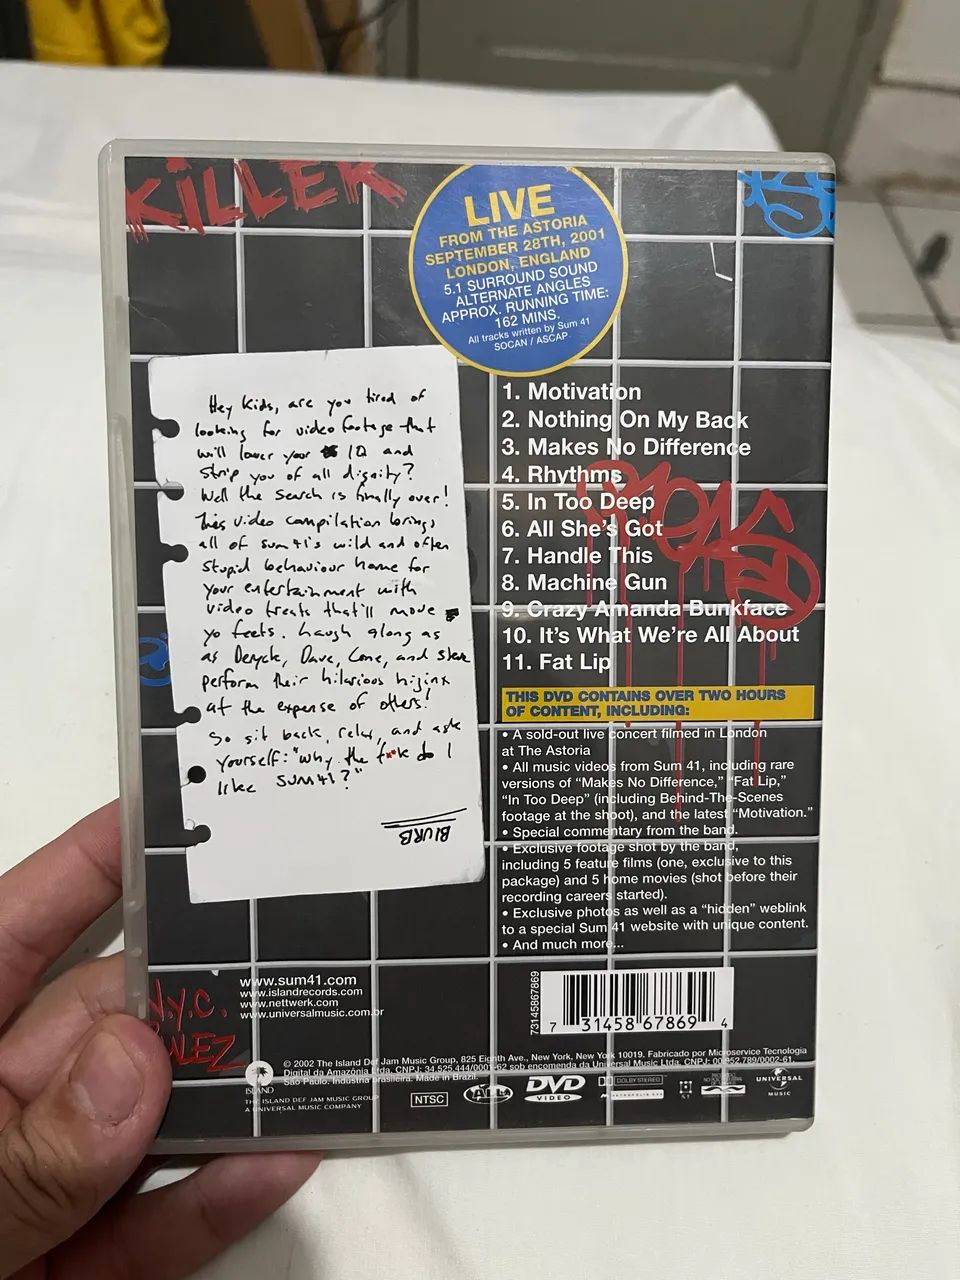 KiLLER
LIVE
FROM THE ASTORIA
SEPTEMBER 28TH, 2001
LONDON, ENGLAND
5.1 SURROUND SOUND
ALTERNATE ANGLES
APPROX. RUNNING TIME:
162 MINS.
All tracks written by Sum 41
SOCAN / ASCAP
Hey Kids, are you tired of
looking for video footage that
will lower your IQ and
strip you of all dignity?
Well the search is finally over!
This video compilation brings
all of sum 41's wild and often
stupid behaviour home for
your entertainment with
video treats that'll move
yo feets. Laugh along as
as Deryck, Dave, Cone, and Steve
perform their hilarious hijinx
at the expense of others!
So sit back, relax, and ask
yourself: "why the f**k do I
like SUM 41?"
BLURB
1. Motivation
2. Nothing On My Back
3. Makes No Difference
4. Rhythms
5. In Too Deep
6. All She's Got
7. Handle This
8. Machine Gun
9. Crazy Amanda Bunkface
10. It's What We're All About
11. Fat Lip
THIS DVD CONTAINS OVER TWO HOURS
OF CONTENT, INCLUDING:
• A sold-out live concert filmed in London
at The Astoria
• All music videos from Sum 41, including rare
versions of "Makes No Difference," "Fat Lip,"
"In Too Deep" (including Behind-The-Scenes
footage at the shoot), and the latest "Motivation."
• Special commentary from the band.
• Exclusive footage shot by the band,
including 5 feature films (one, exclusive to this
package) and 5 home movies (shot before their
recording careers started).
• Exclusive photos as well as a "hidden" weblink
to a special Sum 41 website with unique content.
• And much more...
www.sum41.com
www.islandrecords.com
www.nettwerk.com
www.universalmusic.com.br
73145867869
7 31458 67869 4
N.Y.C.
RULEZ
© 2002 The Island Def Jam Music Group, 825 Eighth Ave., New York, New York 10019. Fabricado por Microservice Tecnologia
Digital da Amazônia Ltda, CNPJ: 34.525.444/0001-62 sob encomenda da Universal Music Ltda. CNPJ: 00.952.789/0002-61,
São Paulo. Indústria brasileira. Made in Brazil.
ISLAND
THE ISLAND DEF JAM MUSIC GROUP
A UNIVERSAL MUSIC COMPANY
NTSC
ALL
DVD
VIDEO
DOLBY STEREO
UNIVERSAL
MUSIC